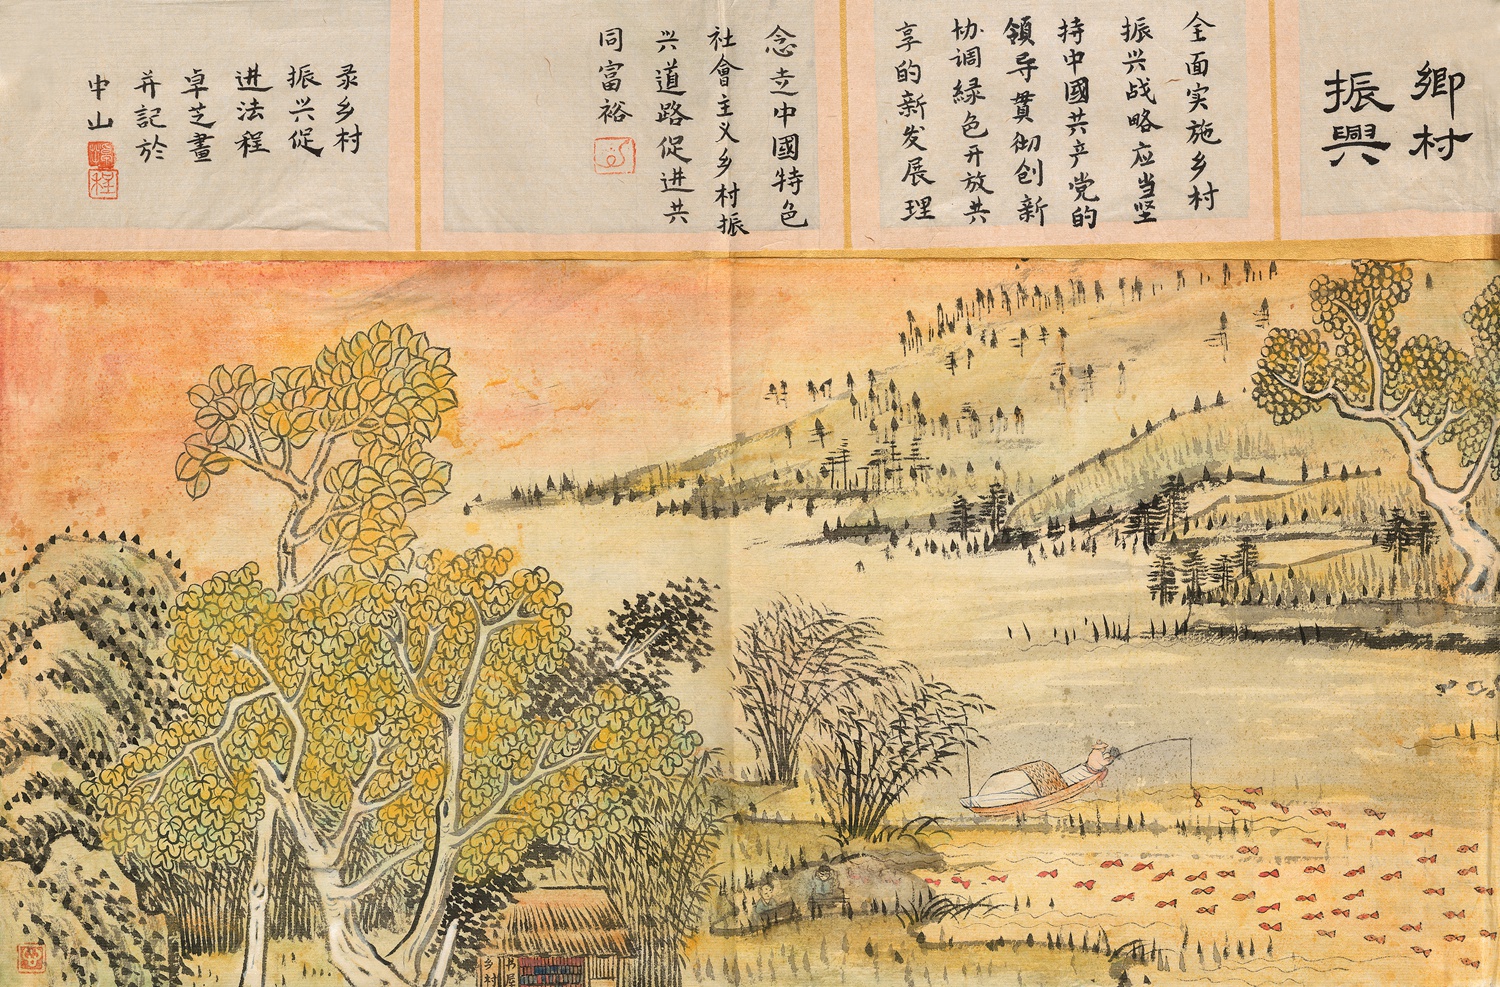 鄉村
振興
全面实施乡村
振兴战略应当坚
持中國共产党的
領导貫彻创新
协调緑色开放共
享的新发展理
念走中國特色
社會主义乡村振
兴道路促进共
同富裕
录乡村
振兴促
进法程
卓芝畫
并記於
中山
乡村
书屋